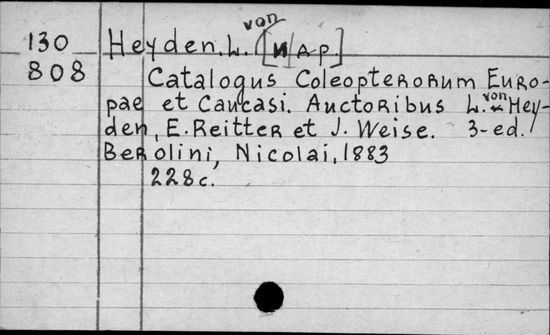 130 Heyden, L. von [И др.]
808 Catalogus Coleopterorum Euro-
pae et Caucasi. Auctoribus L. von Hey-
den, E. Reitter et J. Weise. 3-ed.
Berolini, Nicolai, 1883
228c.